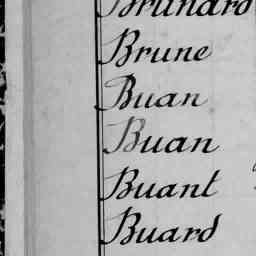 Brunard
Brune
Buan
Buan
Buant
Buard